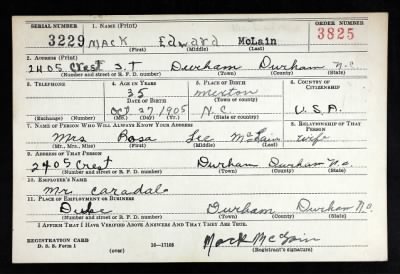 SERIAL NUMBER 1. NAME (Print) ORDER NUMBER
3229 Mack Edward McLain 3825
(First) (Middle) (Last)
2. ADDRESS (Print)
2405 Crest S.T Durham Durham N.C.
(Number and street or R. F. D. number) (Town) (County) (State)
3. TELEPHONE 4. AGE IN YEARS 5. PLACE OF BIRTH 6. COUNTRY OF CITIZENSHIP
35 Mexton
DATE OF BIRTH (Town or county)
Oct 27 1905 N.C. U.S.A.
(Exchange) (Number) (Mo.) (Day) (Yr.) (State or country)
7. NAME OF PERSON WHO WILL ALWAYS KNOW YOUR ADDRESS 8. RELATIONSHIP OF THAT PERSON
Mrs Rosa Lee McLain wife
(Mr., Mrs., Miss) (First) (Middle) (Last)
9. ADDRESS OF THAT PERSON
2405 Crest Durham Durham N.C.
(Number and street or R. F. D. number) (Town) (County) (State)
10. EMPLOYER'S NAME
Mr. Caradale
11. PLACE OF EMPLOYMENT OR BUSINESS
Duke Durham Durham N.C.
(Number and street or R. F. D. number) (Town) (County) (State)
I AFFIRM THAT I HAVE VERIFIED ABOVE ANSWERS AND THAT THEY ARE TRUE.
REGISTRATION CARD
D. S. S. Form 1 (over) 16—17105 Mack McLain
(Registrant's signature)